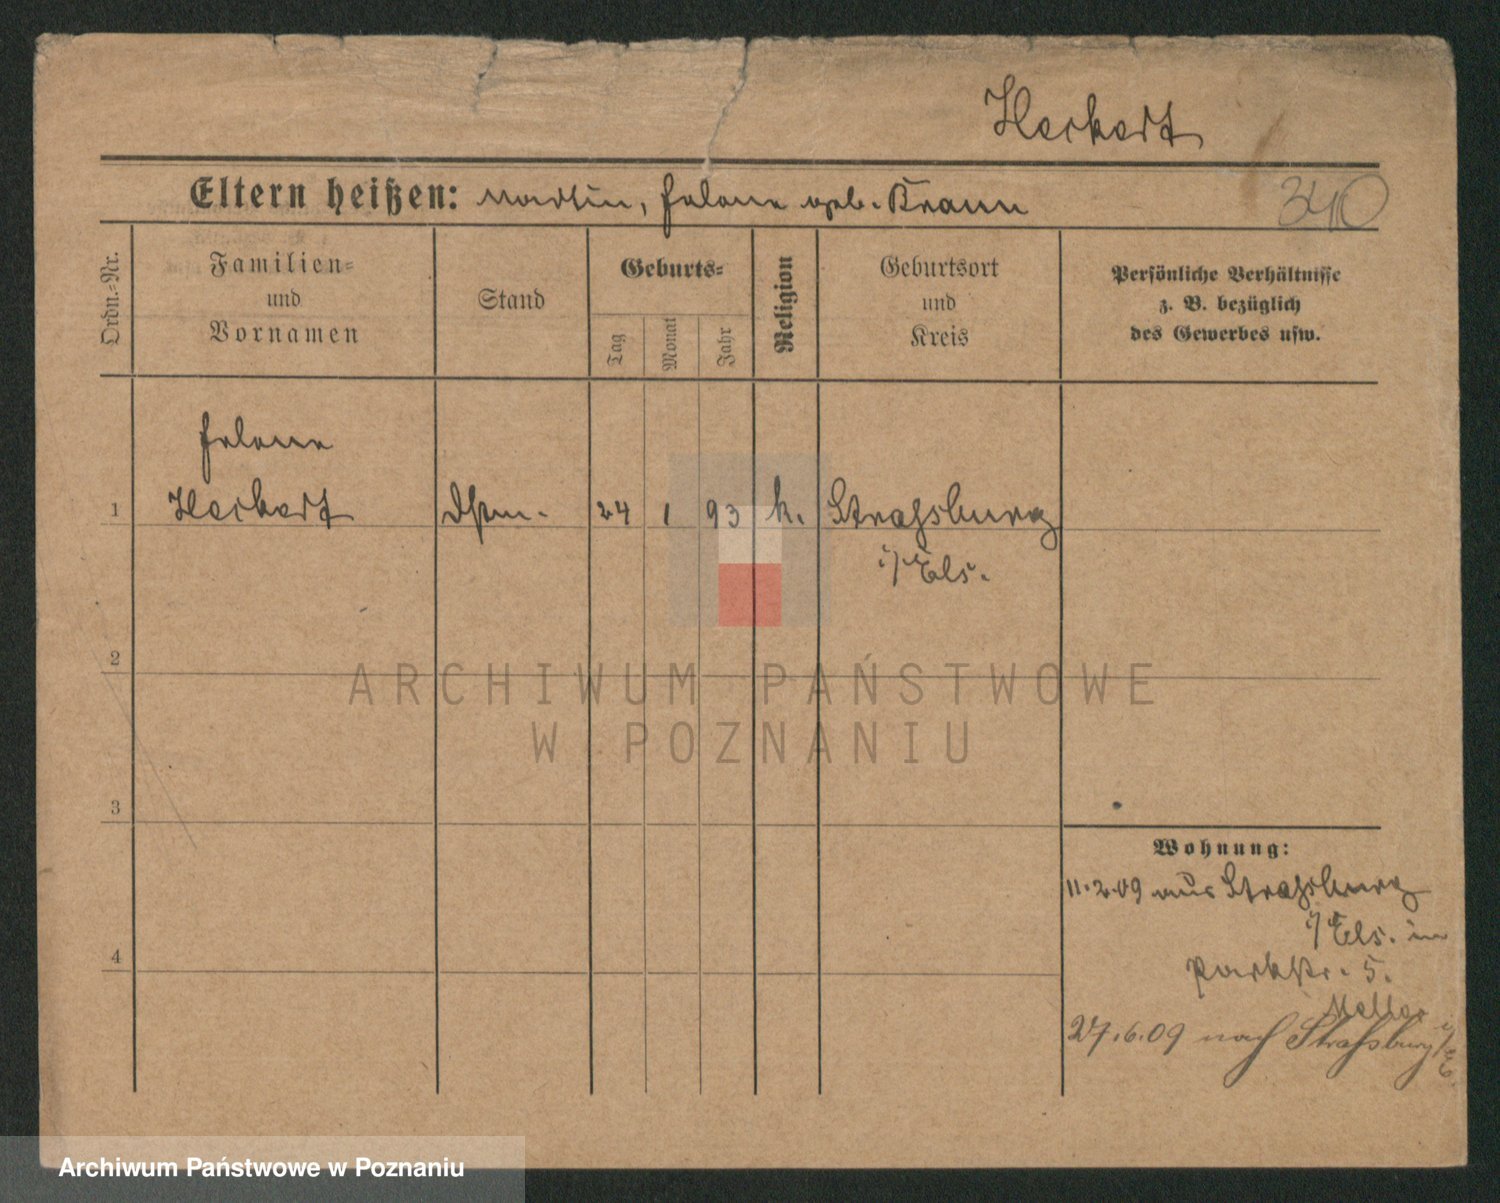 Herkert
Eltern heißen: Martin, Helene geb. Kraun
340
Ordn.-Nr.
Familien-
und
Vornamen
Stand
Geburts-
Tag
Monat
Jahr
Religion
Geburtsort
und
Kreis
Persönliche Verhältnisse
z. B. bezüglich
des Gewerbes usw.
Helene
1 Herkert 24 1 93 k. Strassburg
i/Els.
2
3
4
Wohnung:
11.2.09 aus Strassburg
i/Els. in
Parkstr. 5.
27.6.09 nach Strassburg i/E.
ARCHIWUM PAŃSTWOWE
W POZNANIU
Archiwum Państwowe w Poznaniu